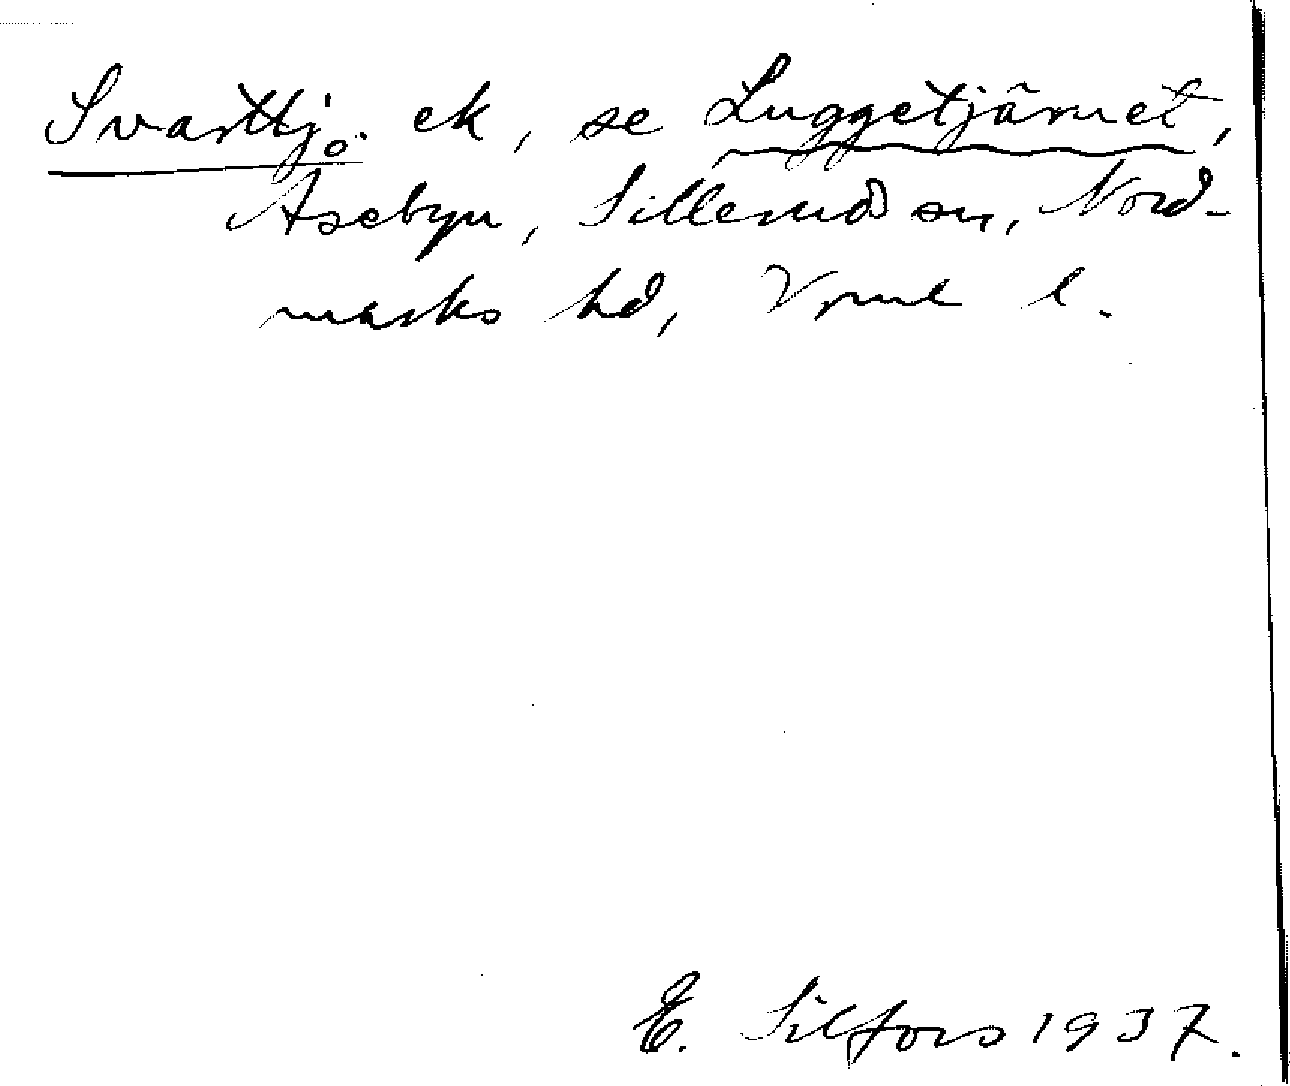 Svarttj. ek, se Luggetjärnet,
Åsebyn, Silleruds sn, Nord-
marks hd, Vrml l.
E. Silfors 1937.